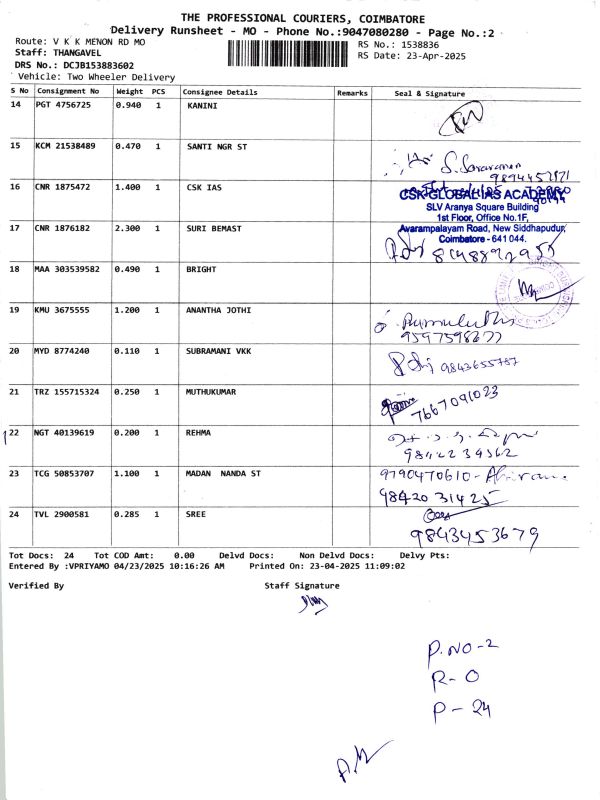 THE PROFESSIONAL COURIERS, COIMBATORE
Delivery Runsheet - MO - Phone No.:9047080280 - Page No.:2
Route: V K K MENON RD MO
RS No.: 1538836
Staff: THANGAVEL
RS Date: 23-Apr-2025
DRS No.: DCJB153883602
Vehicle: Two Wheeler Delivery
S No Consignment No Weight PCS Consignee Details Remarks Seal & Signature
14 PGT 4756725 0.940 1 KANINI
15 KCM 21538489 0.470 1 SANTI NGR ST
S. Saravanan
16 CNR 1875472 1.400 1 CSK IAS
CSK GLOBAL IAS ACADEMY
SLV Aranya Square Building
1st Floor, Office No.1F,
Avarampalayam Road, New Siddhapudur,
Coimbatore - 641 044.
17 CNR 1876182 2.300 1 SURI BEMAST
18 MAA 303539582 0.490 1 BRIGHT
19 KMU 3675555 1.200 1 ANANTHA JOTHI
20 MYD 8774240 0.110 1 SUBRAMANI VKK
9843655787
21 TRZ 155715324 0.250 1 MUTHUKUMAR
7667091023
22 NGT 40139619 0.200 1 REHMA
9842234562
23 TCG 50853707 1.100 1 MADAN NANDA ST
9790470610-
98420 31425
24 TVL 2900581 0.285 1 SREE
9843453679
Tot Docs: 24 Tot COD Amt: 0.00 Delvd Docs: Non Delvd Docs: Delvy Pts:
Entered By :VPRIYAMO 04/23/2025 10:16:26 AM Printed On: 23-04-2025 11:09:02
Verified By Staff Signature
P.NO-2
R- 0
P- 24